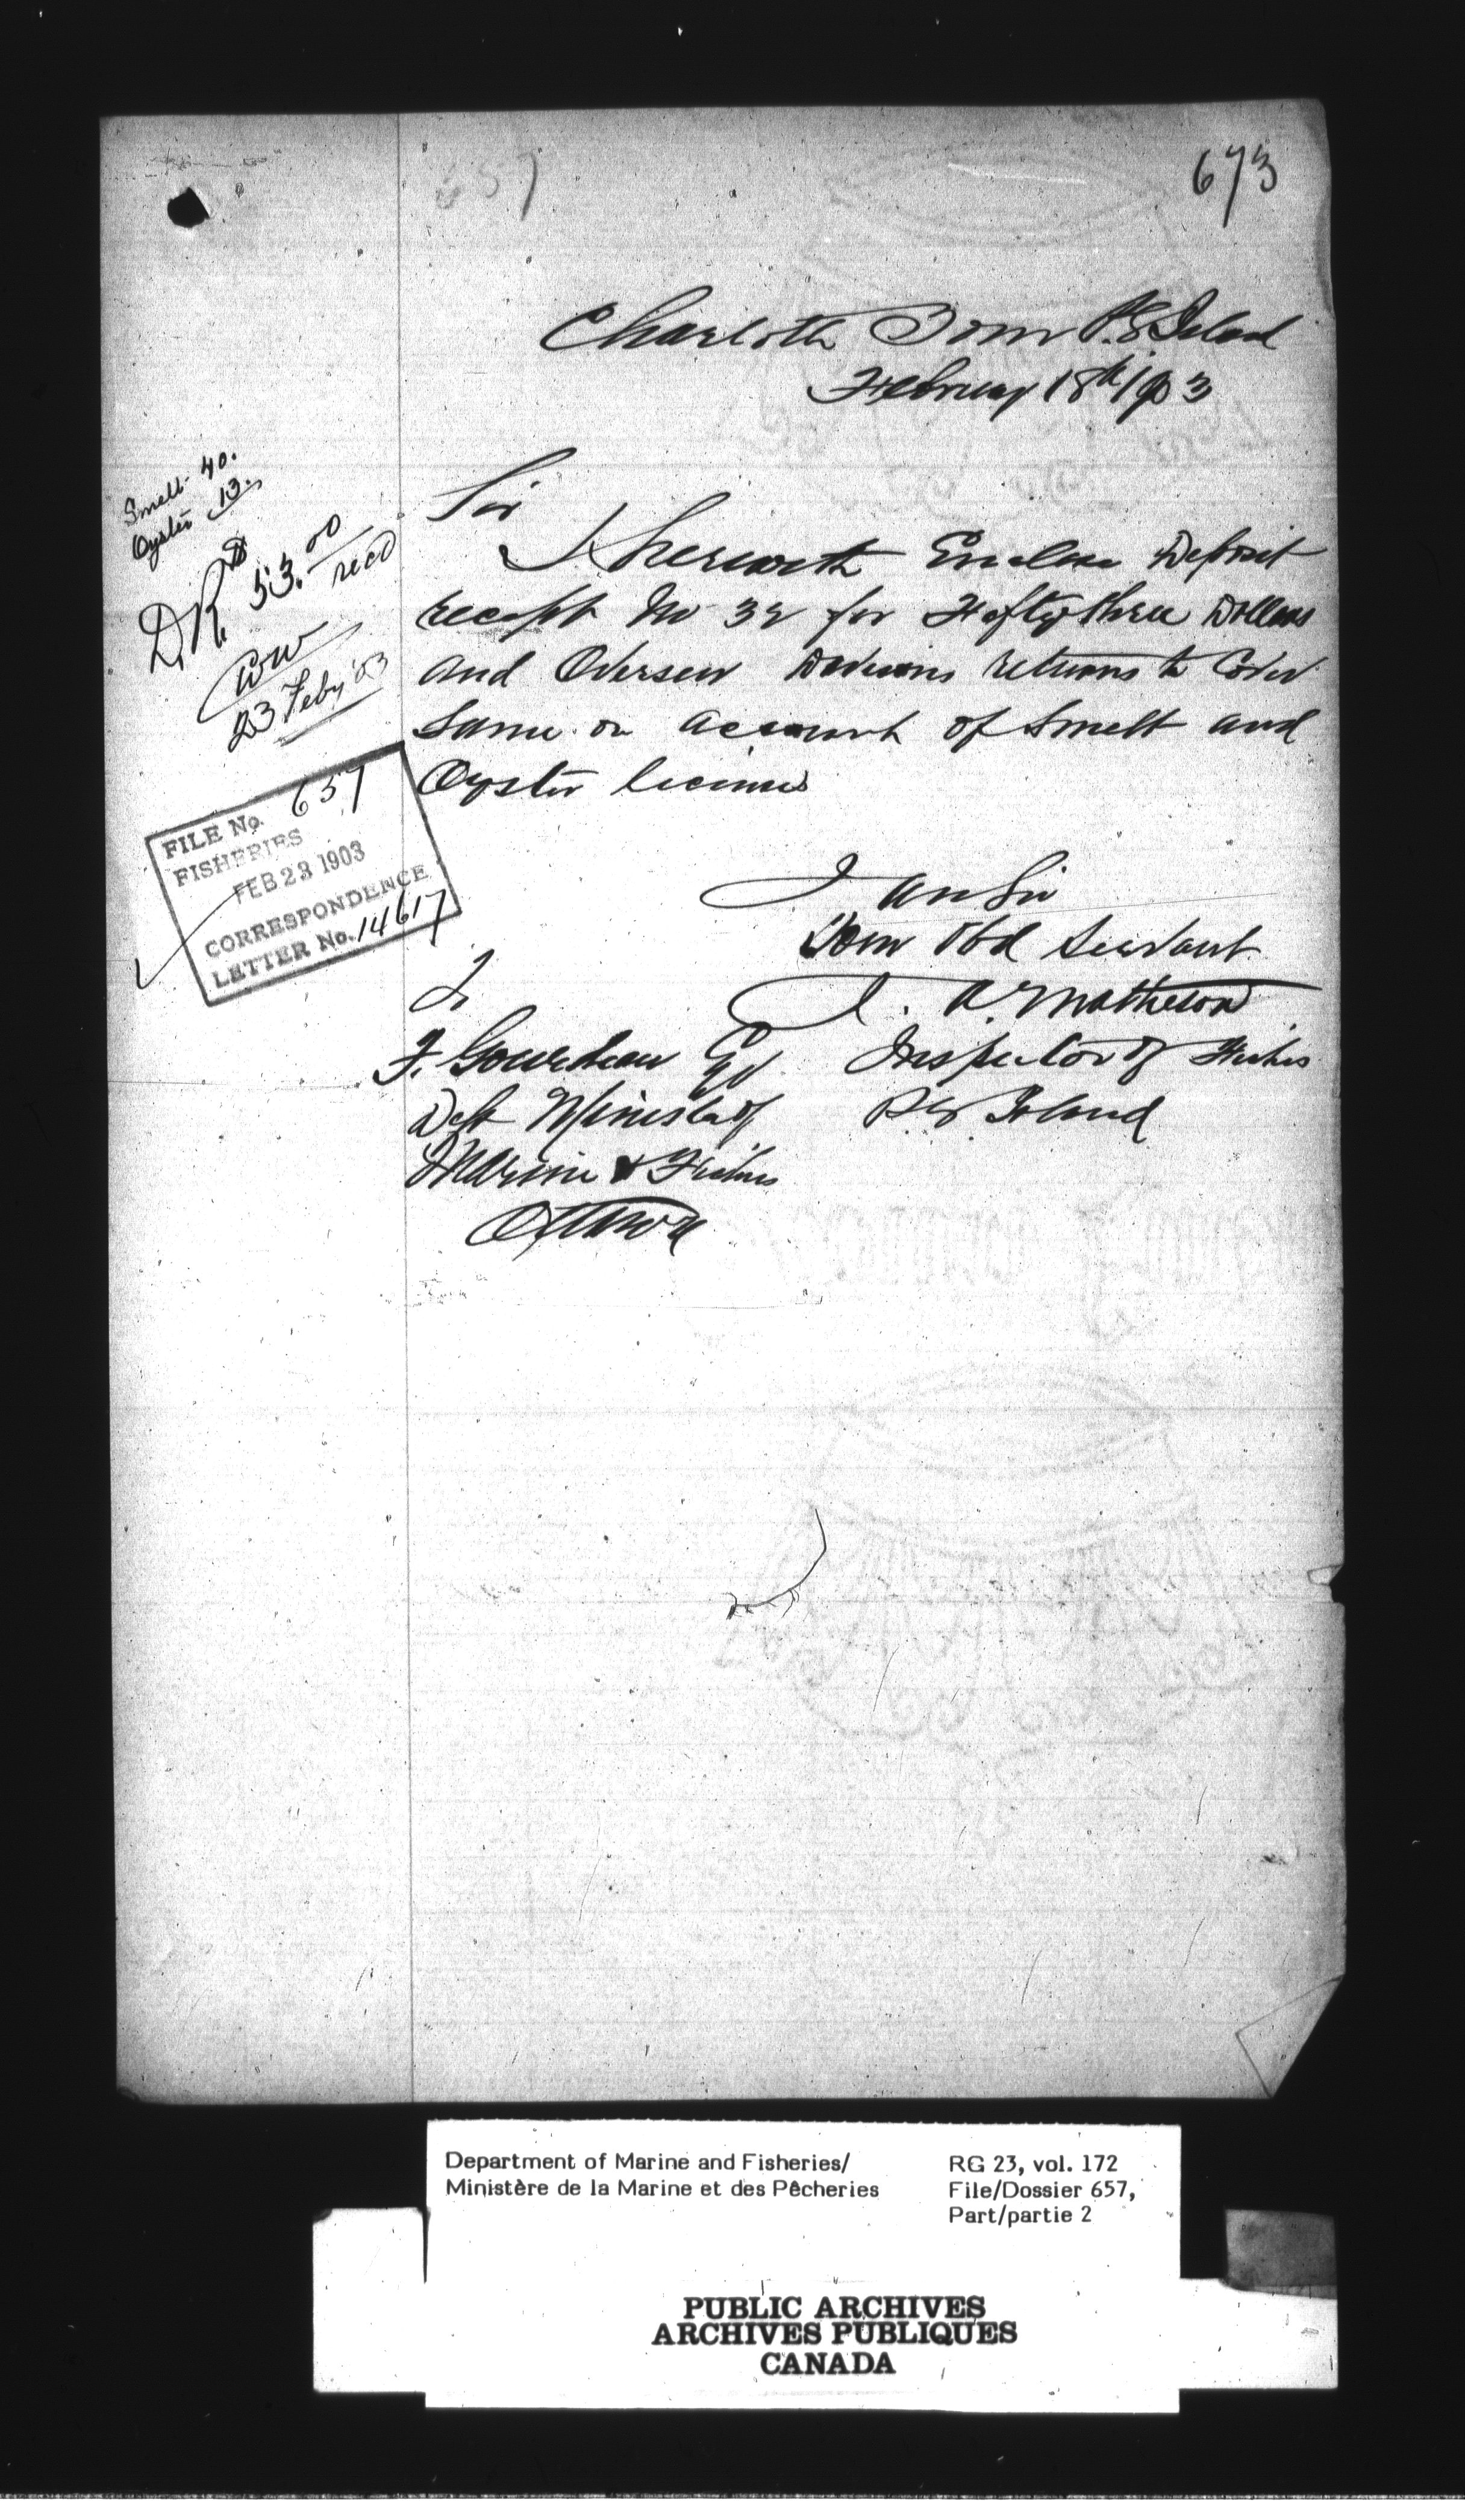 657
673
Charlotte Town P.E Island
February 18th 1903
Smelt 40.
Oyster 13.
D.R. $53.00 recd
23 Feby '03
FILE No. 657
FISHERIES
FEB 23 1903
CORRESPONDENCE
LETTER No. 14617
Sir
I herewith Enclose Deposit
receipt No 32 for Fifty three Dollars
and Overseer returns to Cover
same on account of Smelt and
Oyster licenses
I am Sir
Your Obd Servant
J. A. Matheson
Inspector of Fisheries
P E Island
To
F. Gourdeau Esq
Dept Minister of
Marine & Fisheries
Ottawa
Department of Marine and Fisheries/
Ministère de la Marine et des Pêcheries
RG 23, vol. 172
File/Dossier 657,
Part/partie 2
PUBLIC ARCHIVES
ARCHIVES PUBLIQUES
CANADA